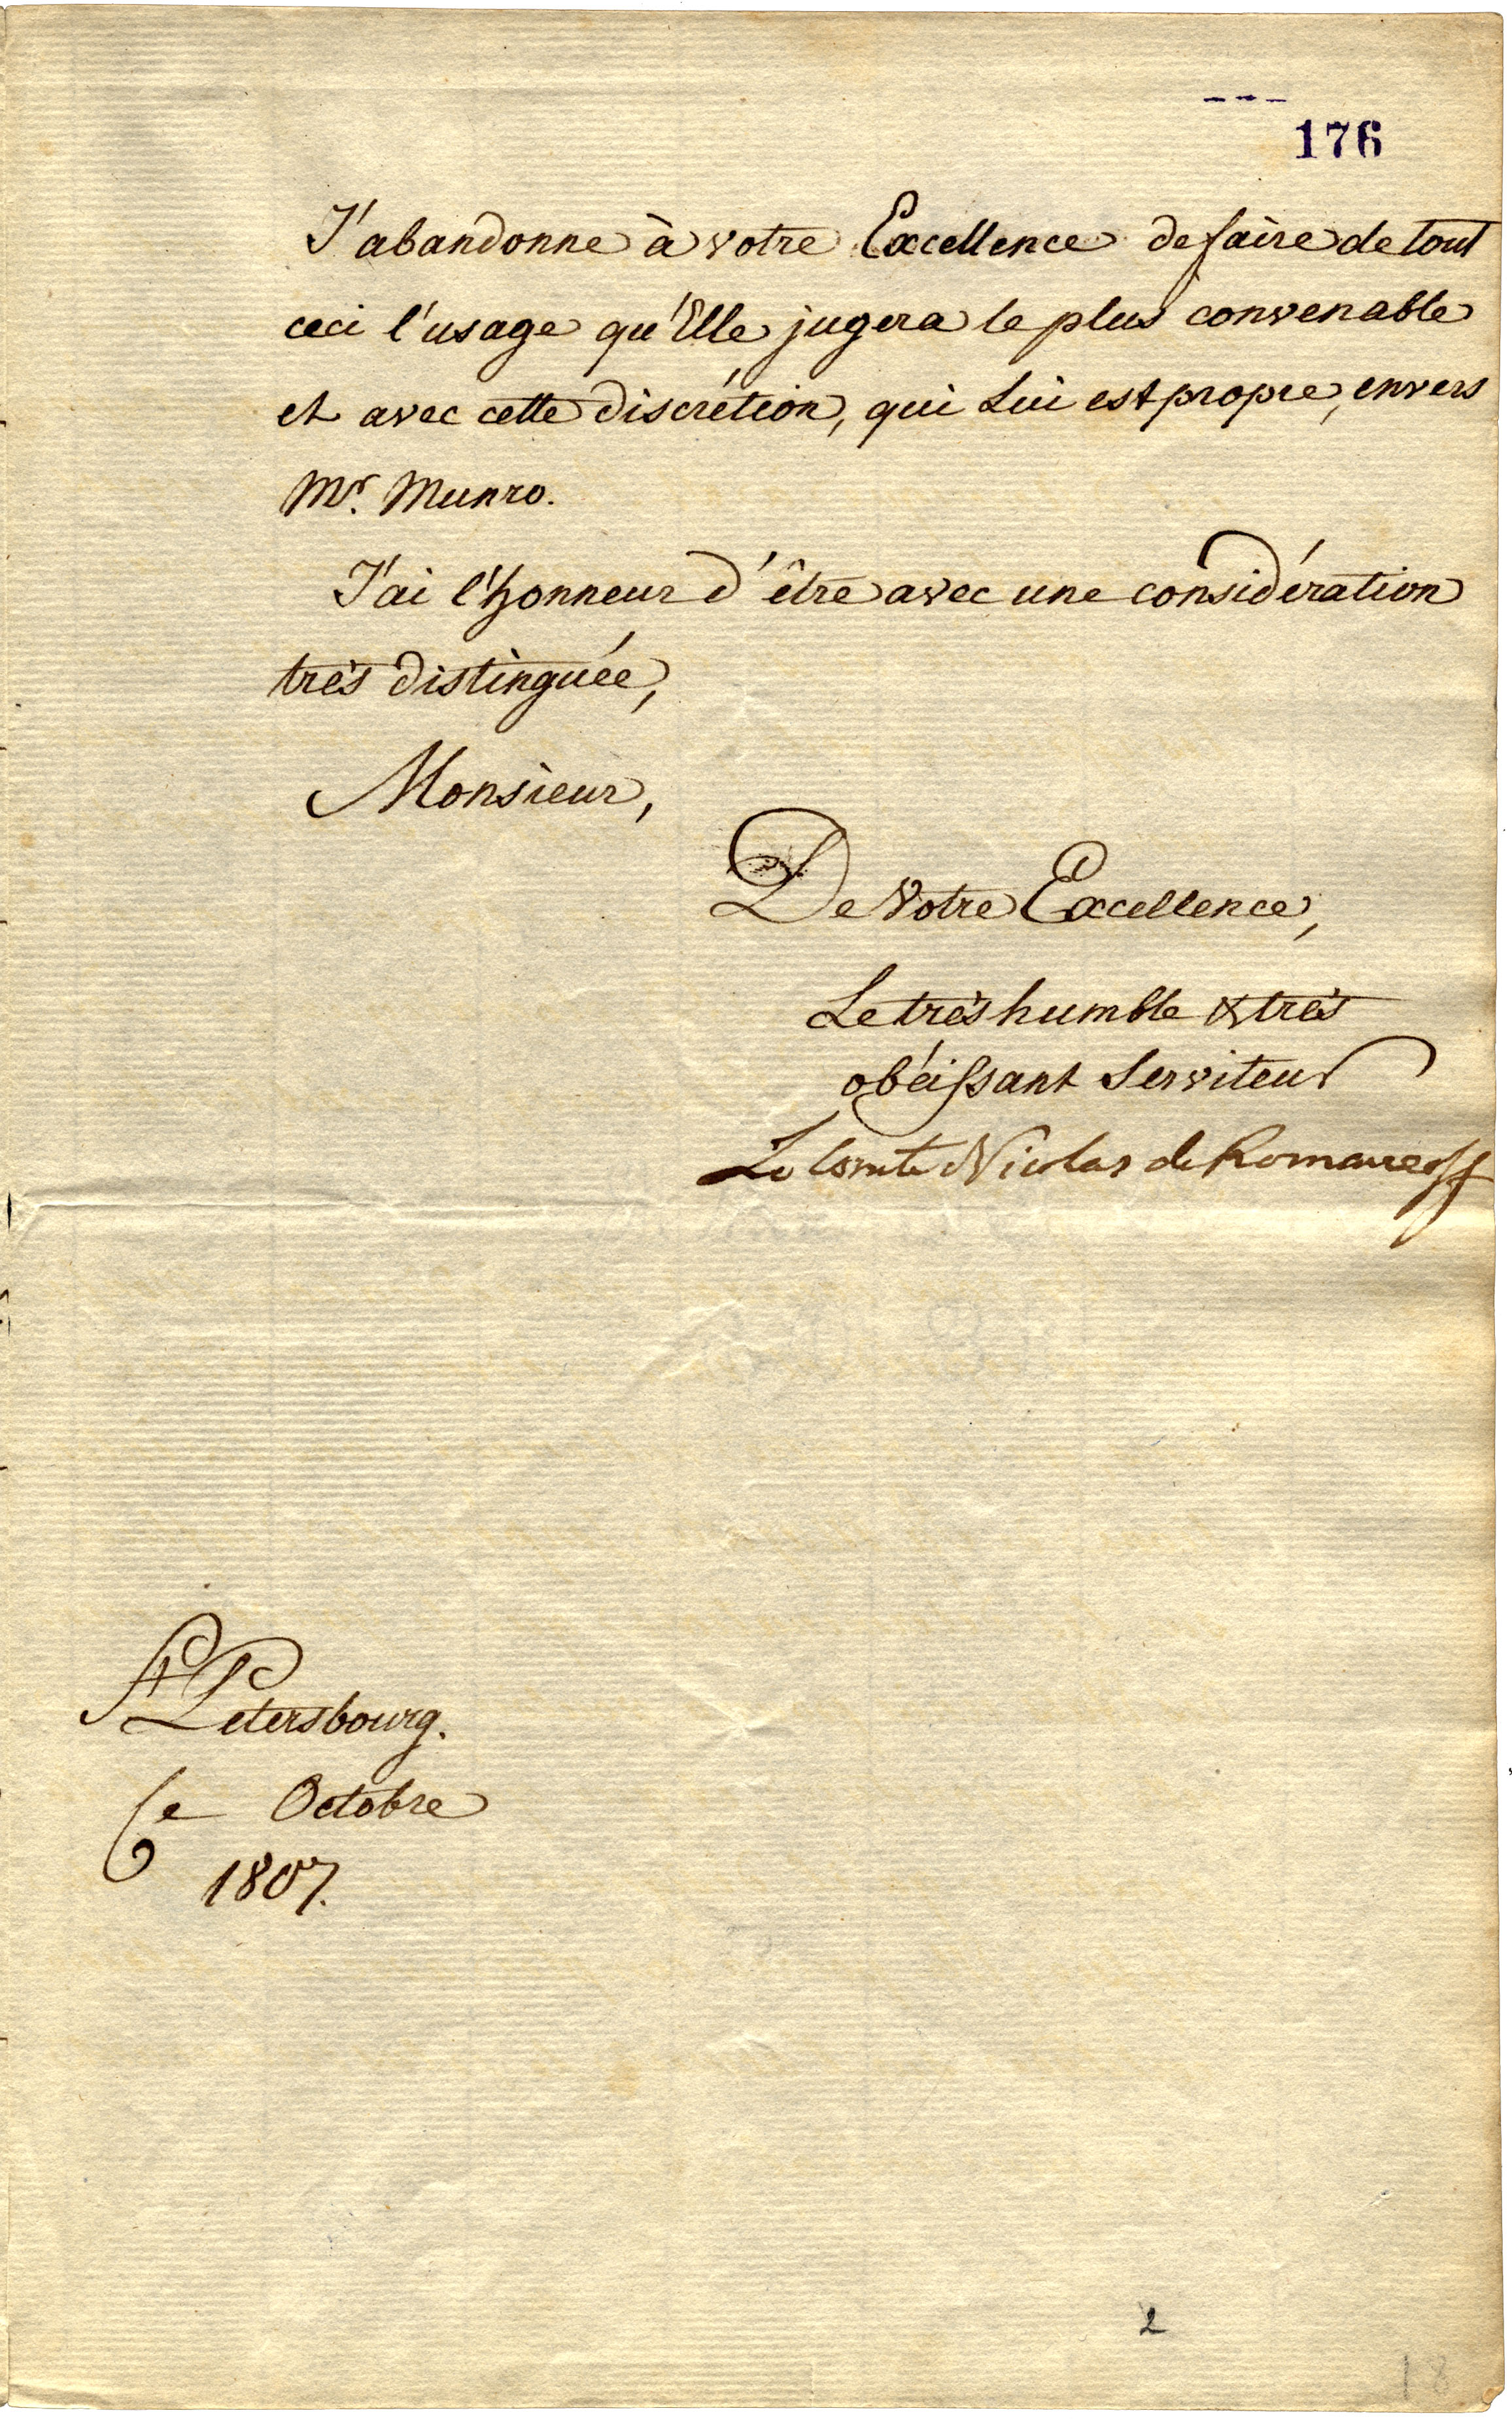 176
J'abandonne à votre Excellence de faire de tout
ceci l'usage qu'Elle jugera le plus convenable
et avec cette discrétion, qui Lui est propre, envers
Mr. Munro.
J'ai l'honneur d'être avec une considération
très distinguée,
Monsieur,
De Votre Excellence,
Le très humble & très
obéissant Serviteur
Le Comte Nicolas de Romanzoff
St Petersbourg.
6e Octobre
1807.
2
18